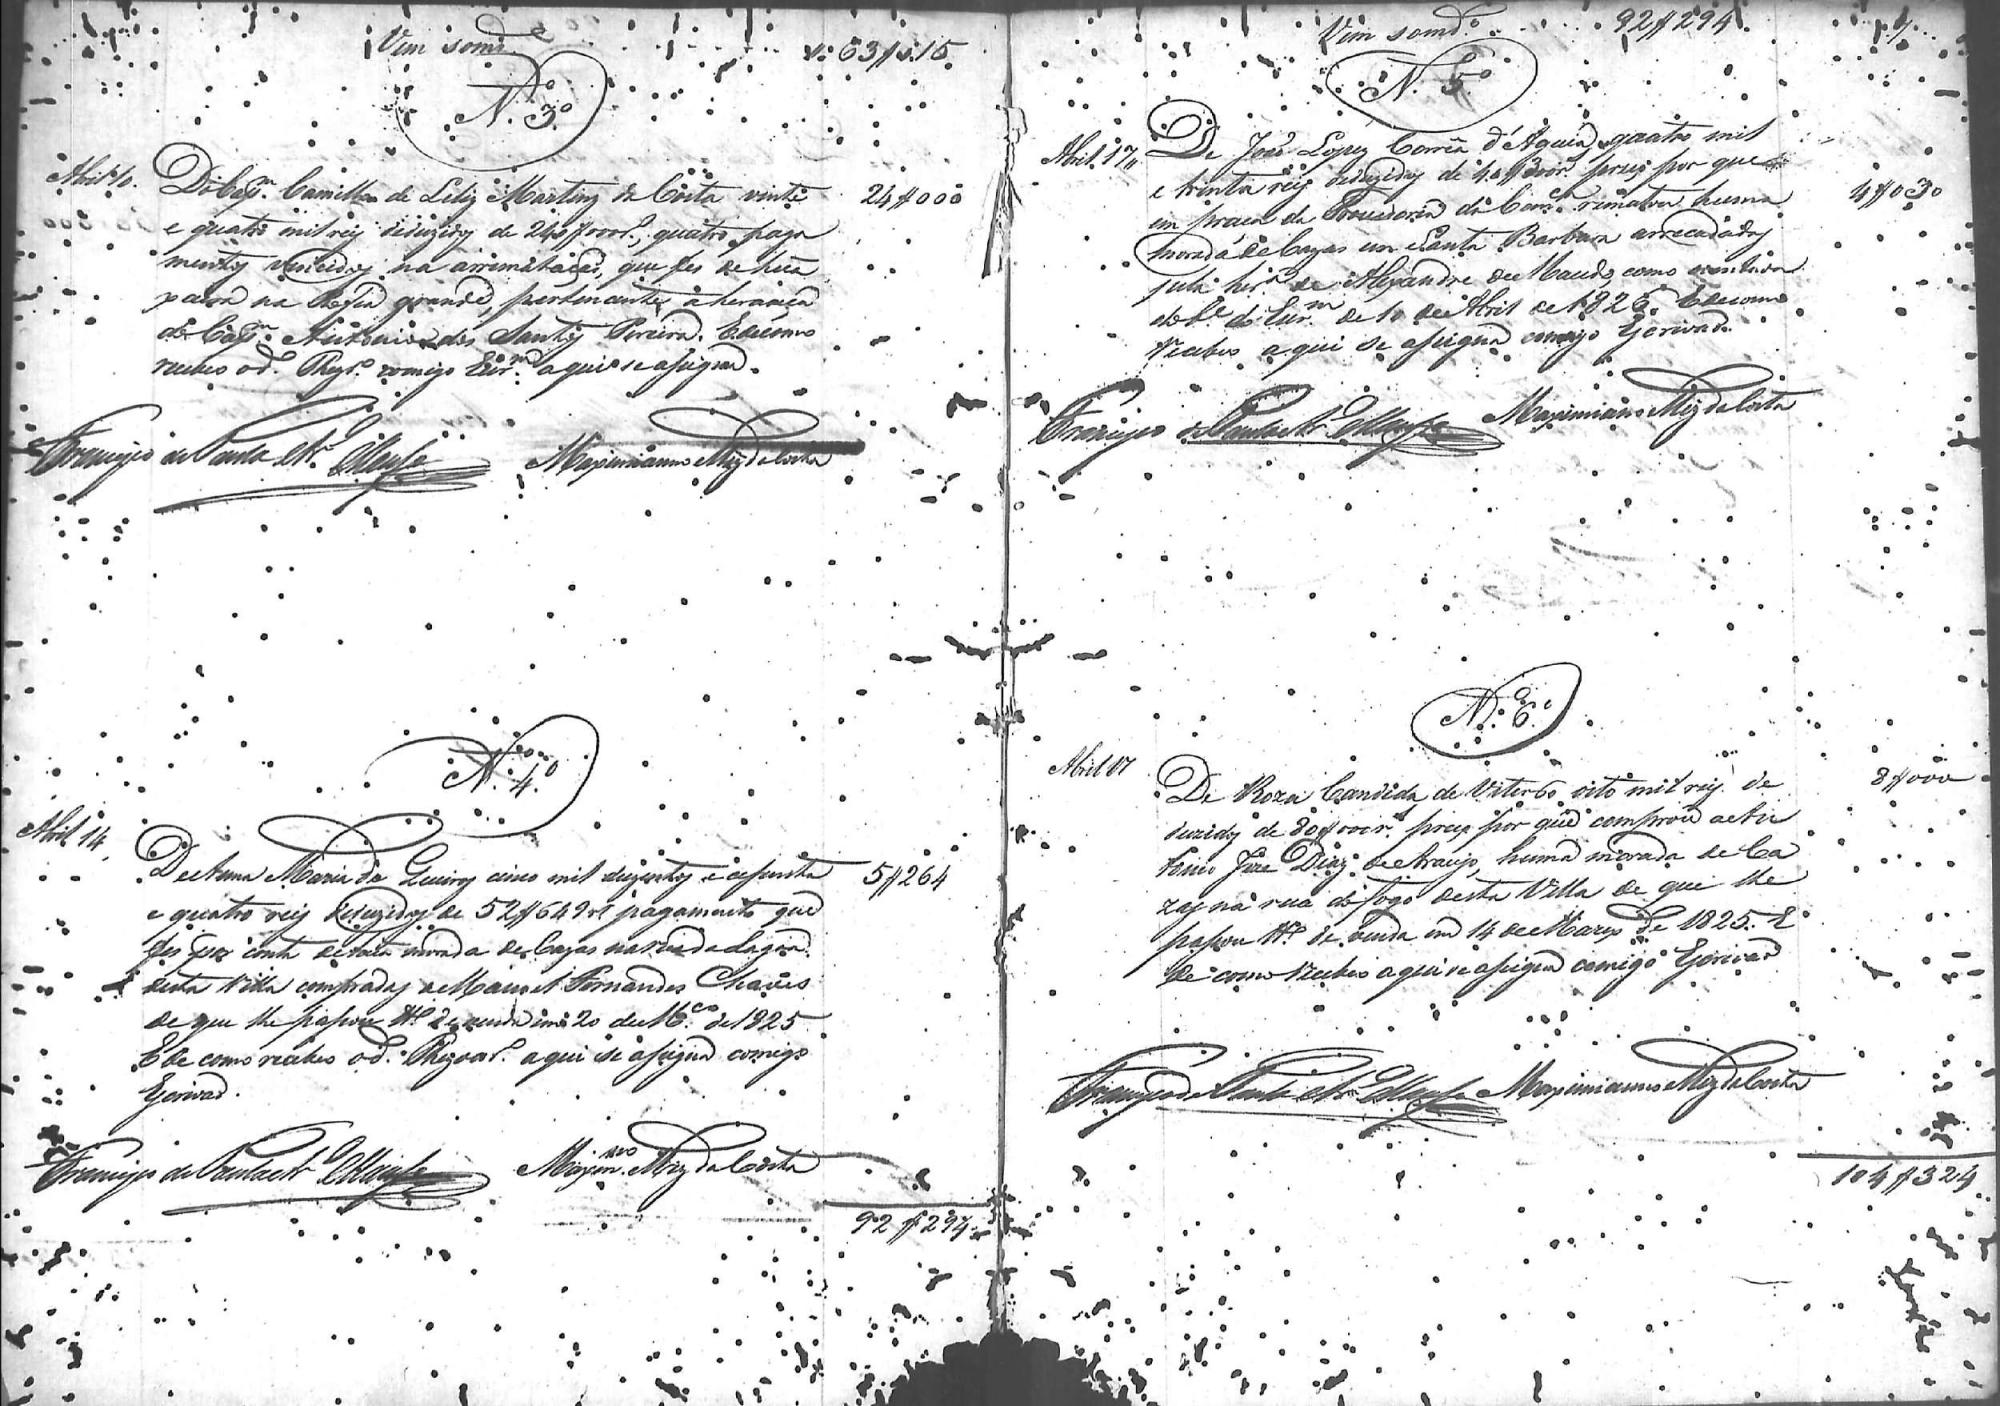 Vem somd.o
N.o 3.o
Abril 10.
Do Cap.m Camillo de Leliz Martins da Costa vinte 24$000
e quatro mil reis deduzidos de 240$000 r.s, quatro paga
mentos vencidos na arrematação, que fes de huã
na grande, pertencente á herança
do Cap.m Antonio dos Santos Pereira. E de como
recebeo o d.o Thezr.o comigo Escr.m aqui se assignou.
Francisco de Paula Maximianno Miz da Costa
N.o 4.o
Abril 14,
De Anna Maria de Queiroz cinco mil duzentos e sessenta 5$264
e quatro reis deduzidos de 52$649 r.s pagamento que
fes por conta de huã morada de Cazas na rua da Lagoa
desta Villa compradas a Manoel Fernandes Chaves
de que lhe passou de venda em 20 de M.ço de 1825
E de como recebeo o d.o Thezour.o aqui se assignou comigo
Escrivaõ.
Francisco de Paula Maxim.no Miz da Costa
92$294
Vem somd.o 92$294
N. 5.o
Abril 17
De Joze Lopez Correa d'Aguiar quatro mil
e trinta reis deduzidos de preço por que 4$030
em praça da Provedoria da Com.ca rematou huma
morada de Cazas em Santa Barbara arrecadadas
pela her.a de Alexandre de Macedo, como
do Escr.m de 10 de Abril de 1826. E de como
recebeo aqui se assignou comigo Escrivaõ.
Francisco de Paula Maximiano Miz da Costa
N.o 6.o
Abril 17
De Roza Candida de Viterbo oito mil reis de 8$000
duzidos de 80$000 r.s preço por que comprou a An
tonio Joze Diaz de Araujo, humã morada de Ca
zas na rua do fogo desta Villa de que lhe
passou de venda em 14 de Março de 1825. E
de como recebeo aqui se assignou comigo Escrivaõ
Francisco de Paula Maximianno Miz da Costa
104$324